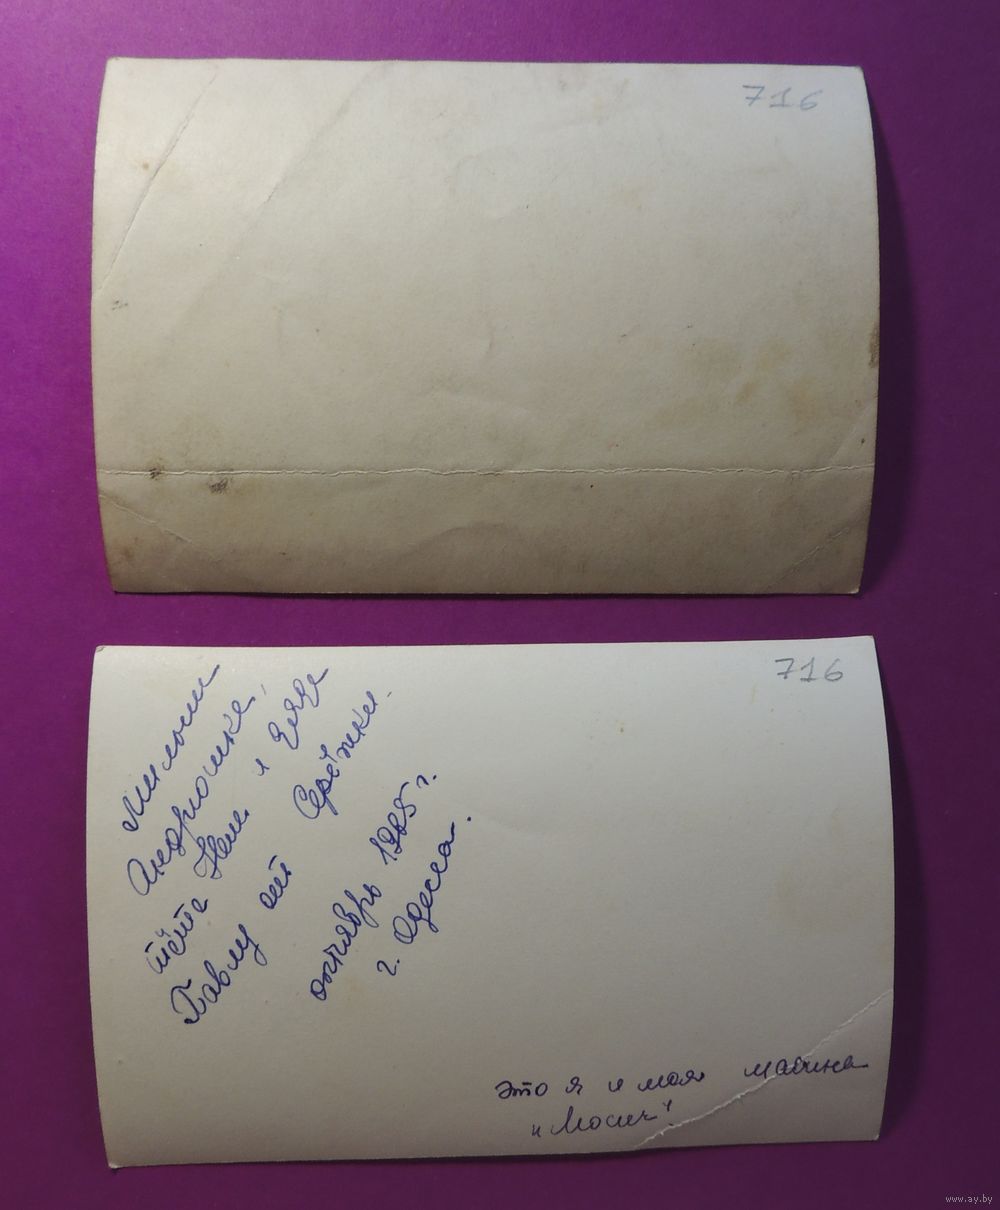 716
716
Милым
Андрюшке,
тёте Неле и дяде
Павлу от Серёжки.
октябрь 1985 г.
г. Одесса.
это я и моя машина
"Мосич"
www.ay.by